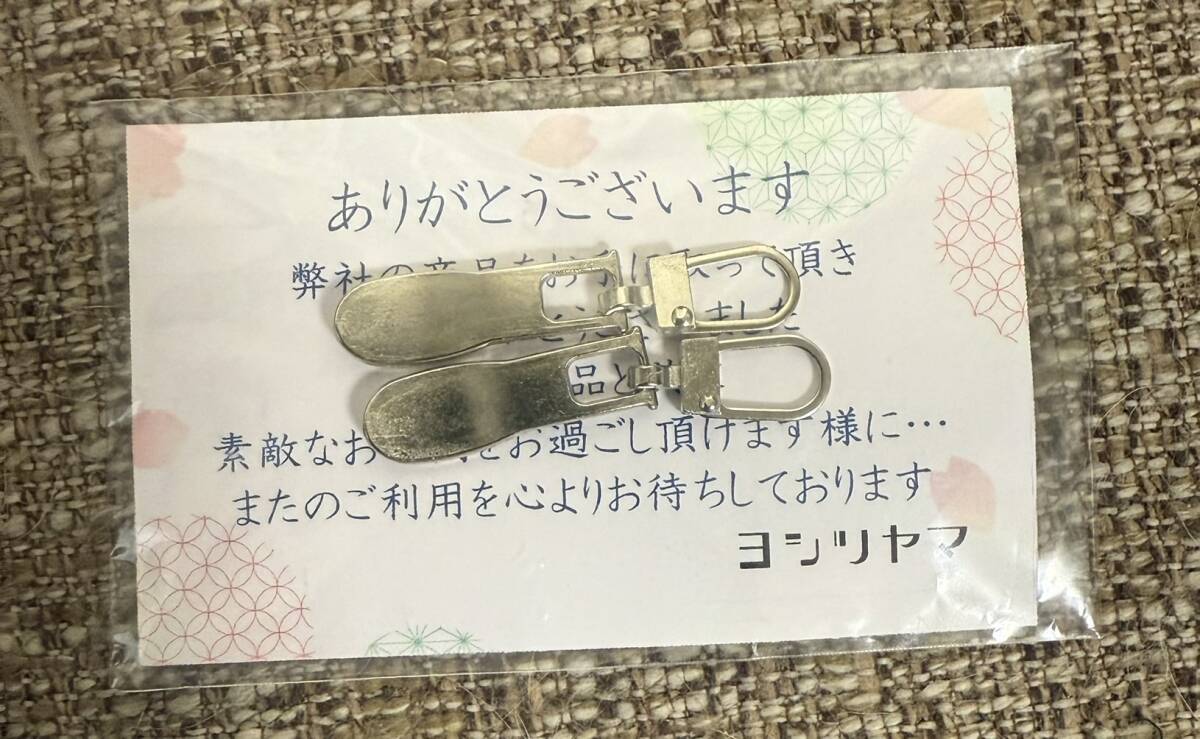 ありがとうございます
弊社の商品をお手に取って頂き
ました
品と
素敵なお をお過ごし頂けます様に…
またのご利用を心よりお待ちしております
ヨシツヤマ